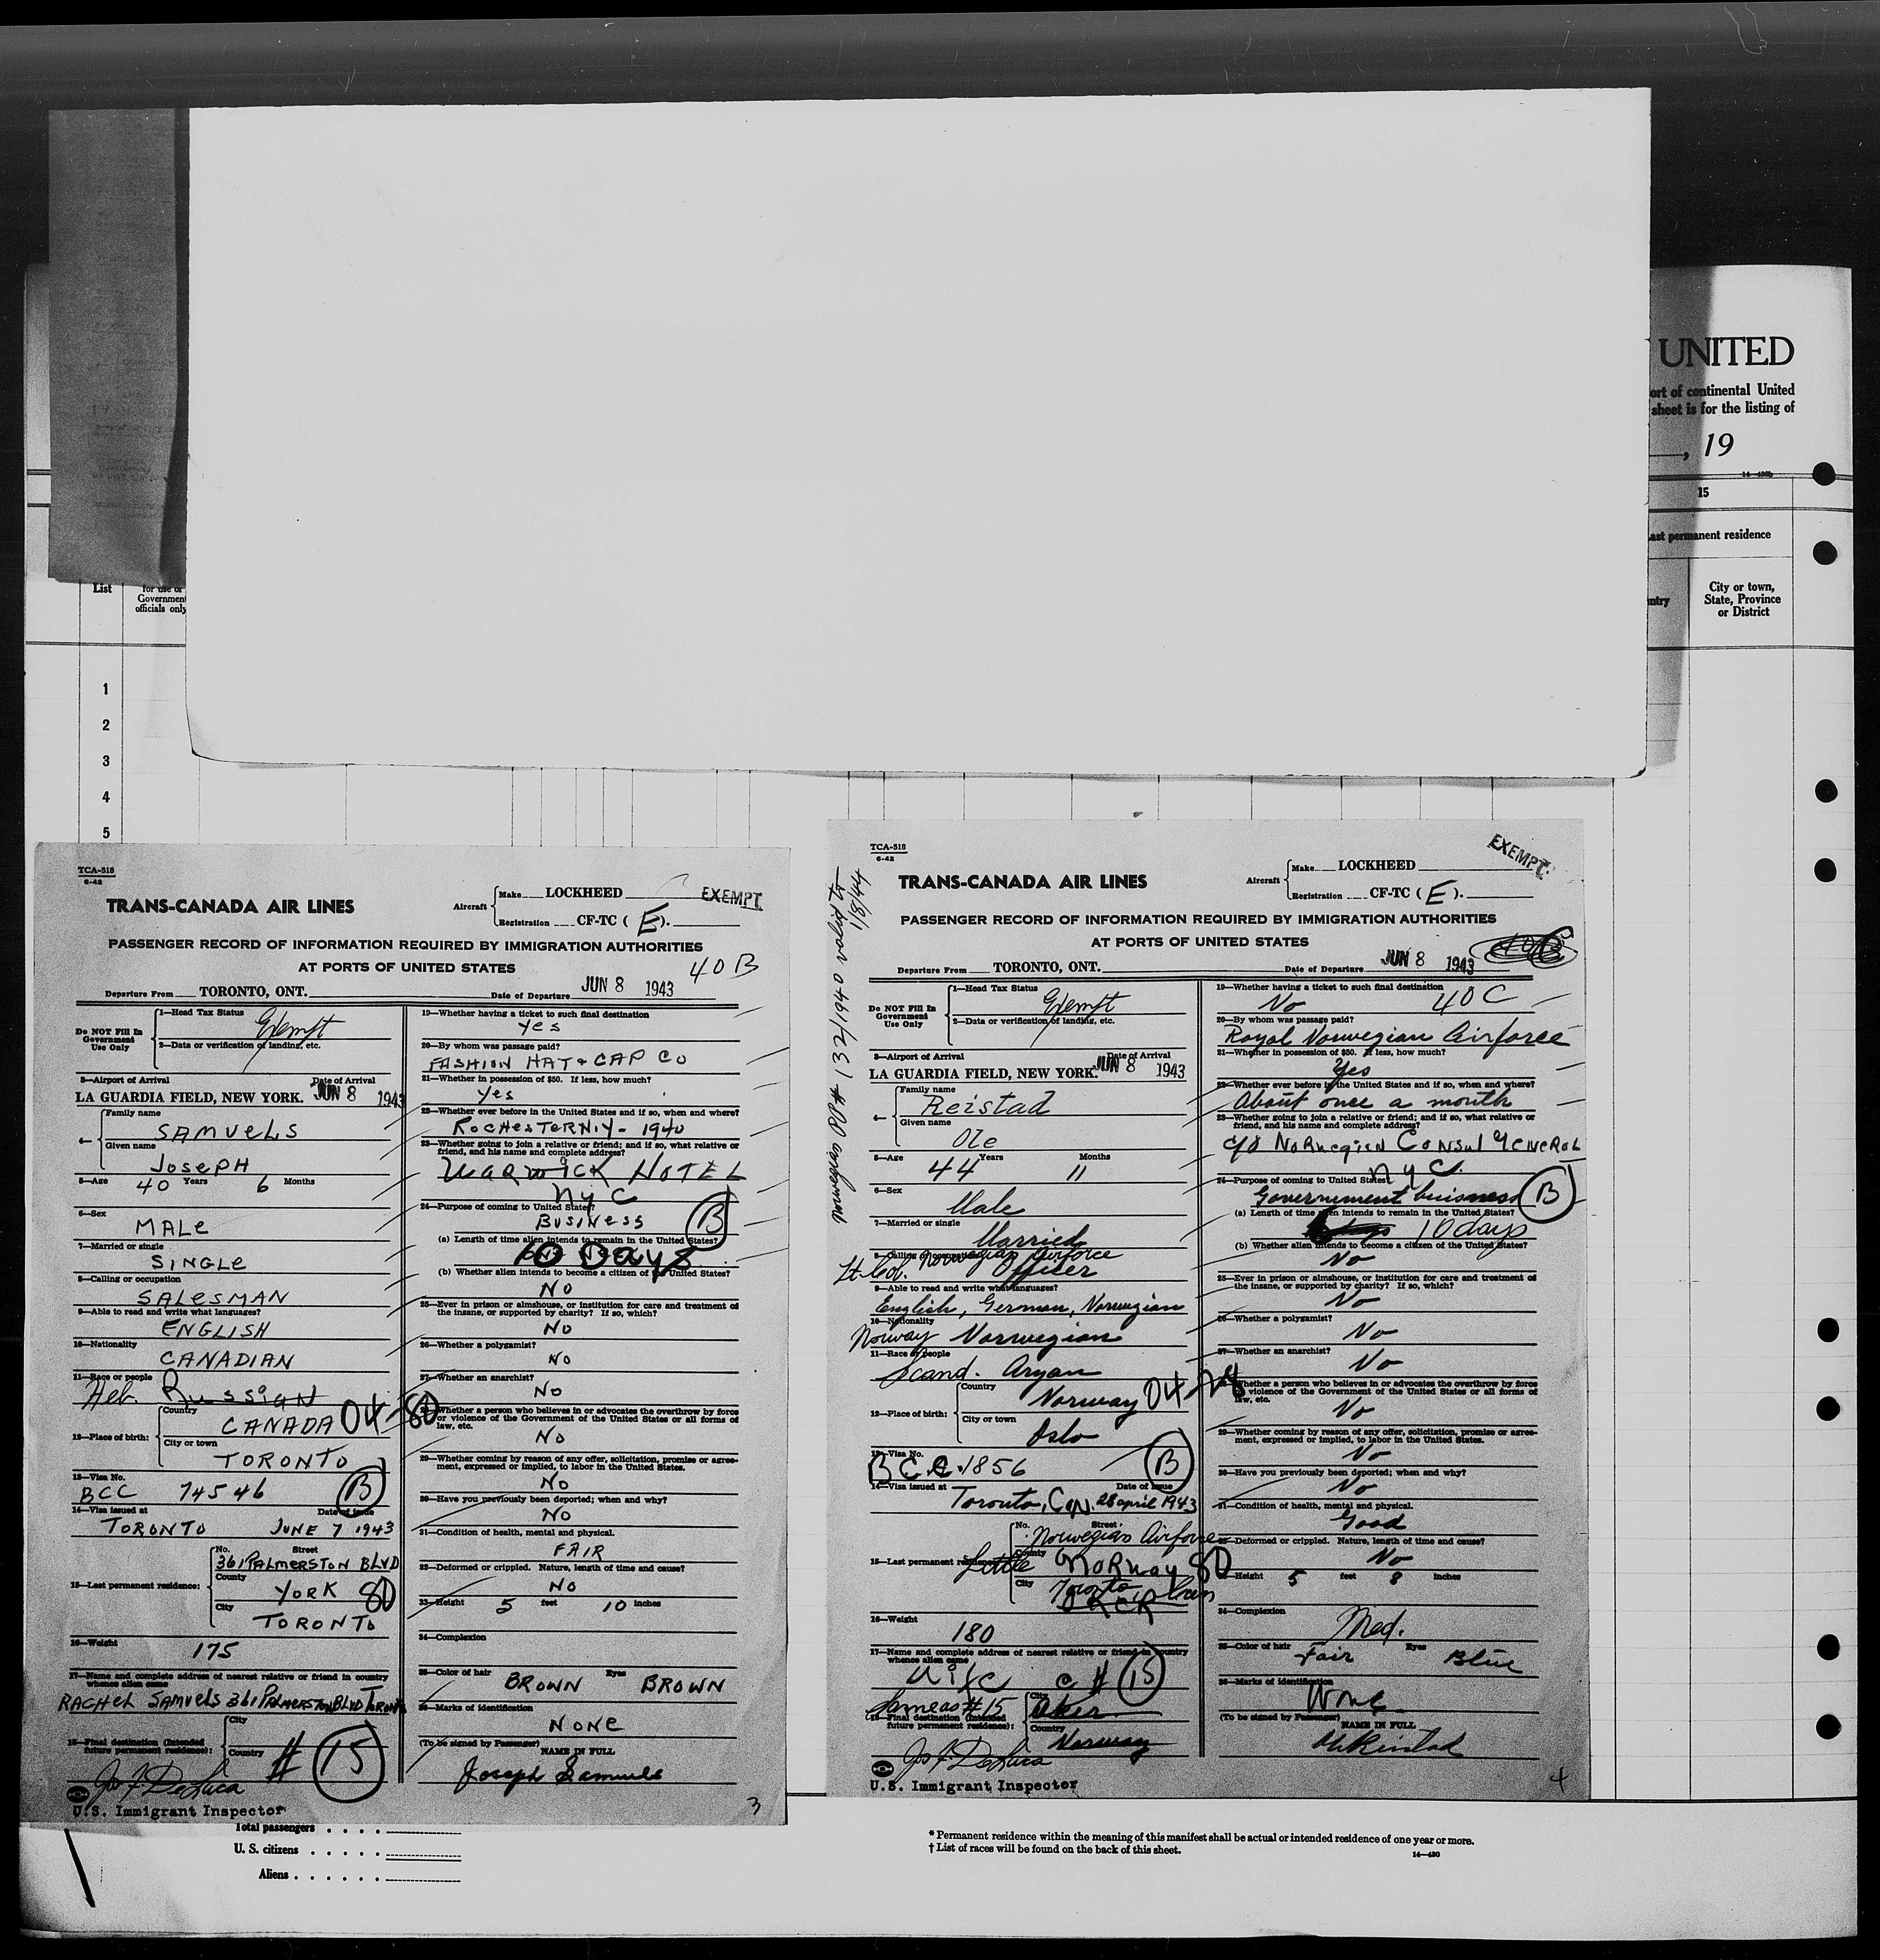 UNITED
ort of continental United
sheet is for the listing of
, 19
14—430b
15
ast permanent residence
List
for use of
Government
officials only
ntry
City or town,
State, Province
or District
1
2
3
4
5
TCA-518
6-42
TRANS-CANADA AIR LINES
Aircraft
Make LOCKHEED
EXEMPT
Registration CF-TC ( E ).
PASSENGER RECORD OF INFORMATION REQUIRED BY IMMIGRATION AUTHORITIES
AT PORTS OF UNITED STATES
40 B
Departure From TORONTO, ONT.
Date of Departure JUN 8 1943
Do NOT Fill In
Government
Use Only
1—Head Tax Status
Exempt
2—Data or verification of landing, etc.
3—Airport of Arrival
Date of Arrival
LA GUARDIA FIELD, NEW YORK. JUN 8 1943
4—
Family name
SAMUELS
Given name
JOSEPH
5—Age 40 Years 6 Months
6—Sex
MALE
7—Married or single
SINGLE
8—Calling or occupation
SALESMAN
9—Able to read and write what languages?
ENGLISH
10—Nationality
CANADIAN
11—Race or people
Heb. Russian
12—Place of birth:
Country
CANADA 04-80
City or town
TORONTO
13—Visa No.
BCC 74546 B
14—Visa issued at
Date of Issue
TORONTO JUNE 7 1943
15—Last permanent residence:
No. Street
361 PALMERSTON BLVD
County
YORK 80
City
TORONTO
16—Weight
175
17—Name and complete address of nearest relative or friend in country
whence alien came
RACHEL SAMUELS 361 PALMERSTON BLVD TORONTO
18—Final destination (Intended
future permanent residence):
City
Country
# 15
Jos F DeLuca
U.S. Immigrant Inspector
19—Whether having a ticket to such final destination
Yes
20—By whom was passage paid?
FASHION HAT & CAP CO
21—Whether in possession of $50. If less, how much?
Yes
22—Whether ever before in the United States and if so, when and where?
ROCHESTER N-Y- 1940
23—Whether going to join a relative or friend; and if so, what relative or
friend, and his name and complete address?
WARWICK HOTEL
NYC
24—Purpose of coming to United States?
BUSINESS B
(a) Length of time alien intends to remain in the United States?
10 Days
(b) Whether alien intends to become a citizen of the United States?
NO
25—Ever in prison or almshouse, or institution for care and treatment of
the insane, or supported by charity? If so, which?
NO
26—Whether a polygamist?
NO
27—Whether an anarchist?
NO
28—Whether a person who believes in or advocates the overthrow by force
or violence of the Government of the United States or all forms of
law, etc.
NO
29—Whether coming by reason of any offer, solicitation, promise or agree-
ment, expressed or implied, to labor in the United States.
NO
30—Have you previously been deported; when and why?
NO
31—Condition of health, mental and physical.
FAIR
32—Deformed or crippled. Nature, length of time and cause?
NO
33—Height 5 feet 10 inches
34—Complexion
35—Color of hair BROWN Eyes BROWN
36—Marks of identification
NONE
(To be signed by Passenger)
NAME IN FULL
Joseph Samuels
3
TCA-518
6-42
TRANS-CANADA AIR LINES
Aircraft
Make LOCKHEED
EXEMPT
Registration CF-TC ( E ).
PASSENGER RECORD OF INFORMATION REQUIRED BY IMMIGRATION AUTHORITIES
AT PORTS OF UNITED STATES
Departure From TORONTO, ONT.
Date of Departure JUN 8 1943
Norwegian PP# 132/1940 valid to
1/8/44
Do NOT Fill In
Government
Use Only
1—Head Tax Status
Exempt
2—Data or verification of landing, etc.
3—Airport of Arrival
Date of Arrival
LA GUARDIA FIELD, NEW YORK. JUN 8 1943
4—
Family name
Reistad
Given name
Ole
5—Age 44 Years 11 Months
6—Sex
Male
7—Married or single
Married
8—Calling or occupation
Lt. Col. Norwegian Airforce
Officer
9—Able to read and write what languages?
English, German, Norwegian
10—Nationality
Norway Norwegian
11—Race or people
Scand. Aryan
12—Place of birth:
Country
Norway 04-28
City or town
Oslo
13—Visa No.
B C C. 1856 B
14—Visa issued at
Date of Issue
Toronto, Can. 28 april 1943
15—Last permanent residence:
No. Street
Norwegian Airforce
County
Little Norway 80
City
Toronto
16—Weight
180
17—Name and complete address of nearest relative or friend in country
whence alien came
Wife c # 15
Same as # 15
18—Final destination (Intended
future permanent residence):
City
Aker
Country
Norway
Jos F DeLuca
U.S. Immigrant Inspector
19—Whether having a ticket to such final destination
No 40 C
20—By whom was passage paid?
Royal Norwegian Airforce
21—Whether in possession of $50. If less, how much?
Yes
22—Whether ever before in the United States and if so, when and where?
About once a month
23—Whether going to join a relative or friend; and if so, what relative or
friend, and his name and complete address?
c/o Norwegian Consul General
NYC.
24—Purpose of coming to United States?
Governement buisness B
(a) Length of time alien intends to remain in the United States?
10 days
(b) Whether alien intends to become a citizen of the United States?
No
25—Ever in prison or almshouse, or institution for care and treatment of
the insane, or supported by charity? If so, which?
No
26—Whether a polygamist?
No
27—Whether an anarchist?
No
28—Whether a person who believes in or advocates the overthrow by force
or violence of the Government of the United States or all forms of
law, etc.
No
29—Whether coming by reason of any offer, solicitation, promise or agree-
ment, expressed or implied, to labor in the United States.
No
30—Have you previously been deported; when and why?
No
31—Condition of health, mental and physical.
Good
32—Deformed or crippled. Nature, length of time and cause?
No
33—Height 5 feet 8 inches
34—Complexion
Med.
35—Color of hair Fair Eyes Blue
36—Marks of identification
None
(To be signed by Passenger)
NAME IN FULL
Ole Reistad
4
Total passengers . . . .
U. S. citizens . . . . .
Aliens . . . . . .
* Permanent residence within the meaning of this manifest shall be actual or intended residence of one year or more.
† List of races will be found on the back of this sheet.
14—430